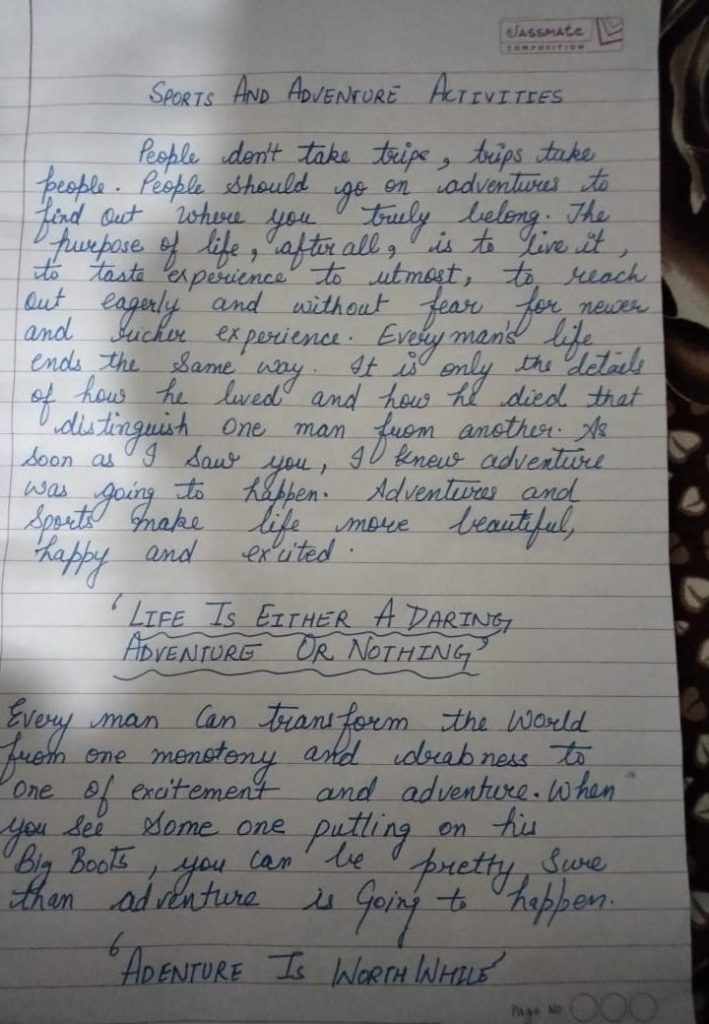 classmate
COMPOSITION
SPORTS AND ADVENTURE ACTIVITIES
People don't take trips, trips take
people. People should go on adventures to
find out where you truly belong. The
purpose of life, after all, is to live it,
to taste experience to utmost, to reach
out eagerly and without fear for newer
and richer experience. Every man's life
ends the same way. It is only the details
of how he lived and how he died that
distinguish one man from another. As
soon as I saw you, I knew adventure
was going to happen. Adventures and
Sports make life more beautiful,
happy and excited.
'LIFE IS EITHER A DARING
ADVENTURE OR NOTHING'
Every man can transform the world
from one monotony and drabness to
one of excitement and adventure. When
you see some one putting on his
Big Boots, you can be pretty sure
than adventure is Going to happen.
'ADENTURE IS WORTH WHILE'
Page No